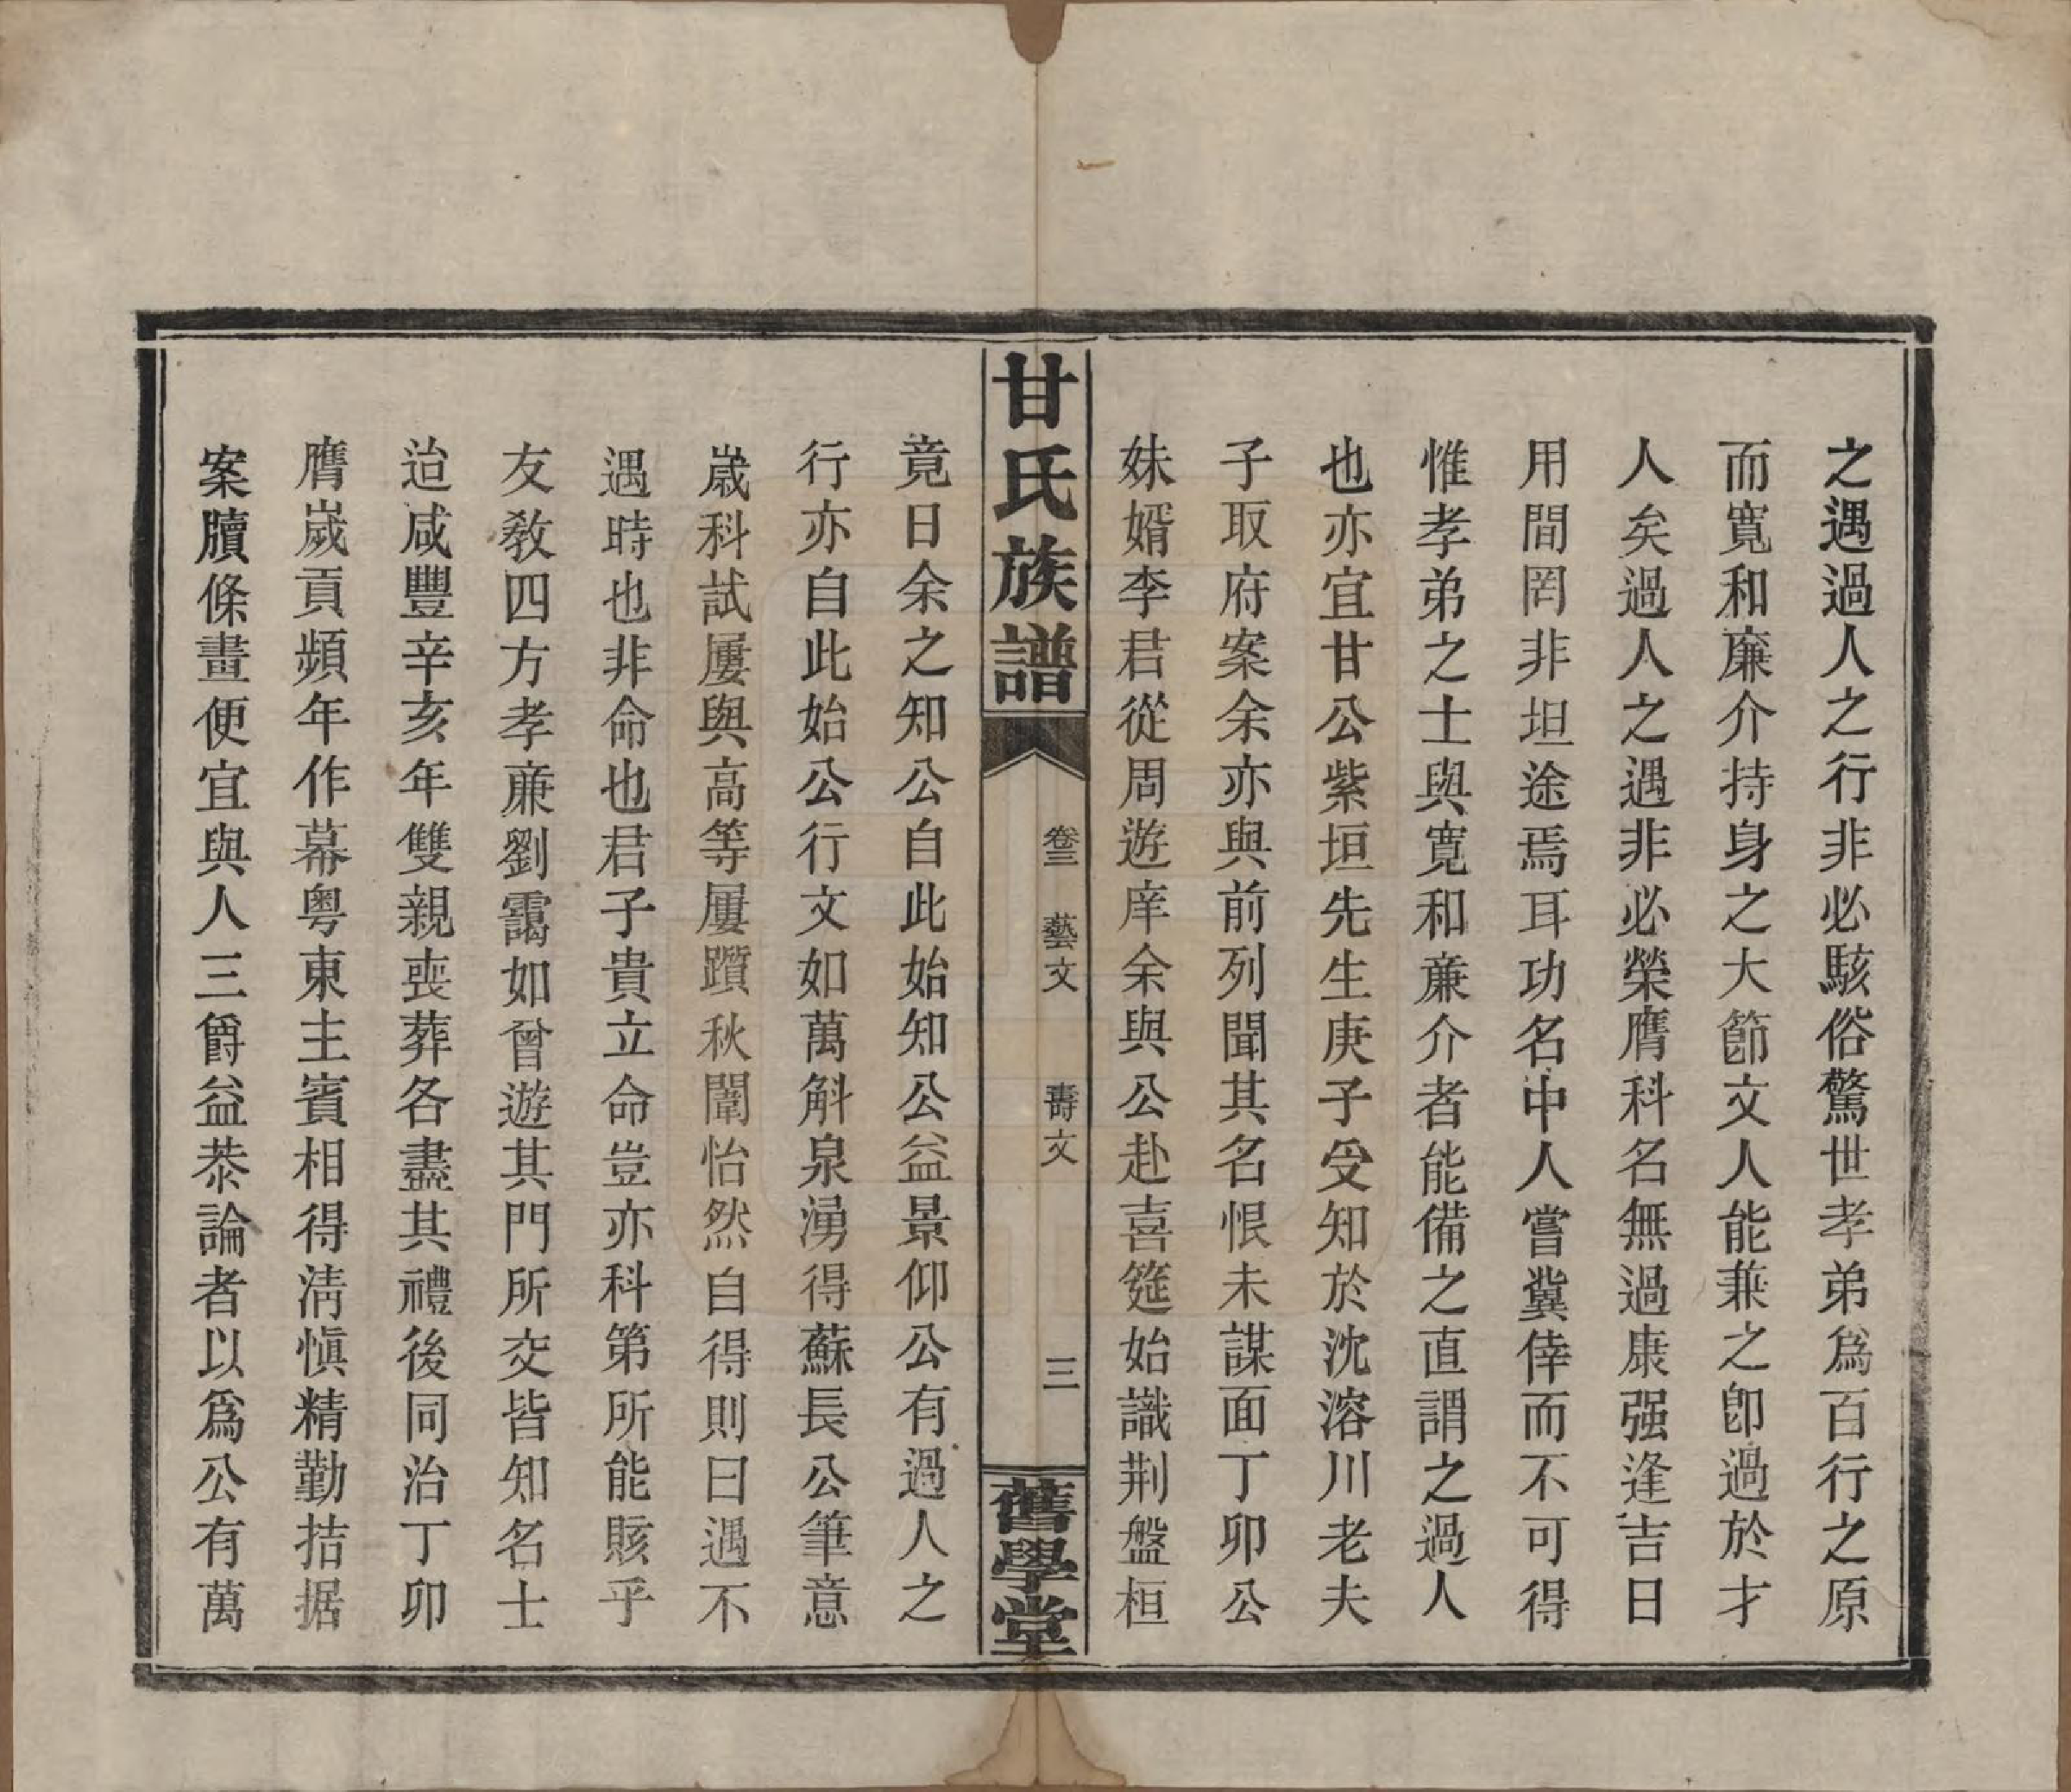 之遇過人之行非必駭俗驚世孝弟爲百行之原
而寬和廉介持身之大節文人能兼之卽過於才
人矣過人之遇非必榮膺科名無過康强逢吉日
用間罔非坦途焉耳功名中人嘗冀倖而不可得
惟孝弟之士與寬和廉介者能備之直謂之過人
也亦宜甘公紫垣先生庚子受知於沈溶川老夫
子取府案余亦與前列聞其名恨未謀面丁卯公
妹婿李君從周遊庠余與公赴喜筵始識荆盤桓
甘氏族譜
卷三 藝文 壽文 三
舊學堂
竟日余之知公自此始知公益景仰公有過人之
行亦自此始公行文如萬斛泉湧得蘇長公筆意
歲科試屢與高等屢躓秋闈怡然自得則曰遇不
遇時也非命也君子貴立命豈亦科第所能賅乎
友教四方孝廉劉靄如曾遊其門所交皆知名士
迨咸豐辛亥年雙親喪葬各盡其禮後同治丁卯
膺歲貢頻年作幕粵東主賓相得淸愼精勤拮据
案牘條畫便宜與人三爵益恭論者以爲公有萬